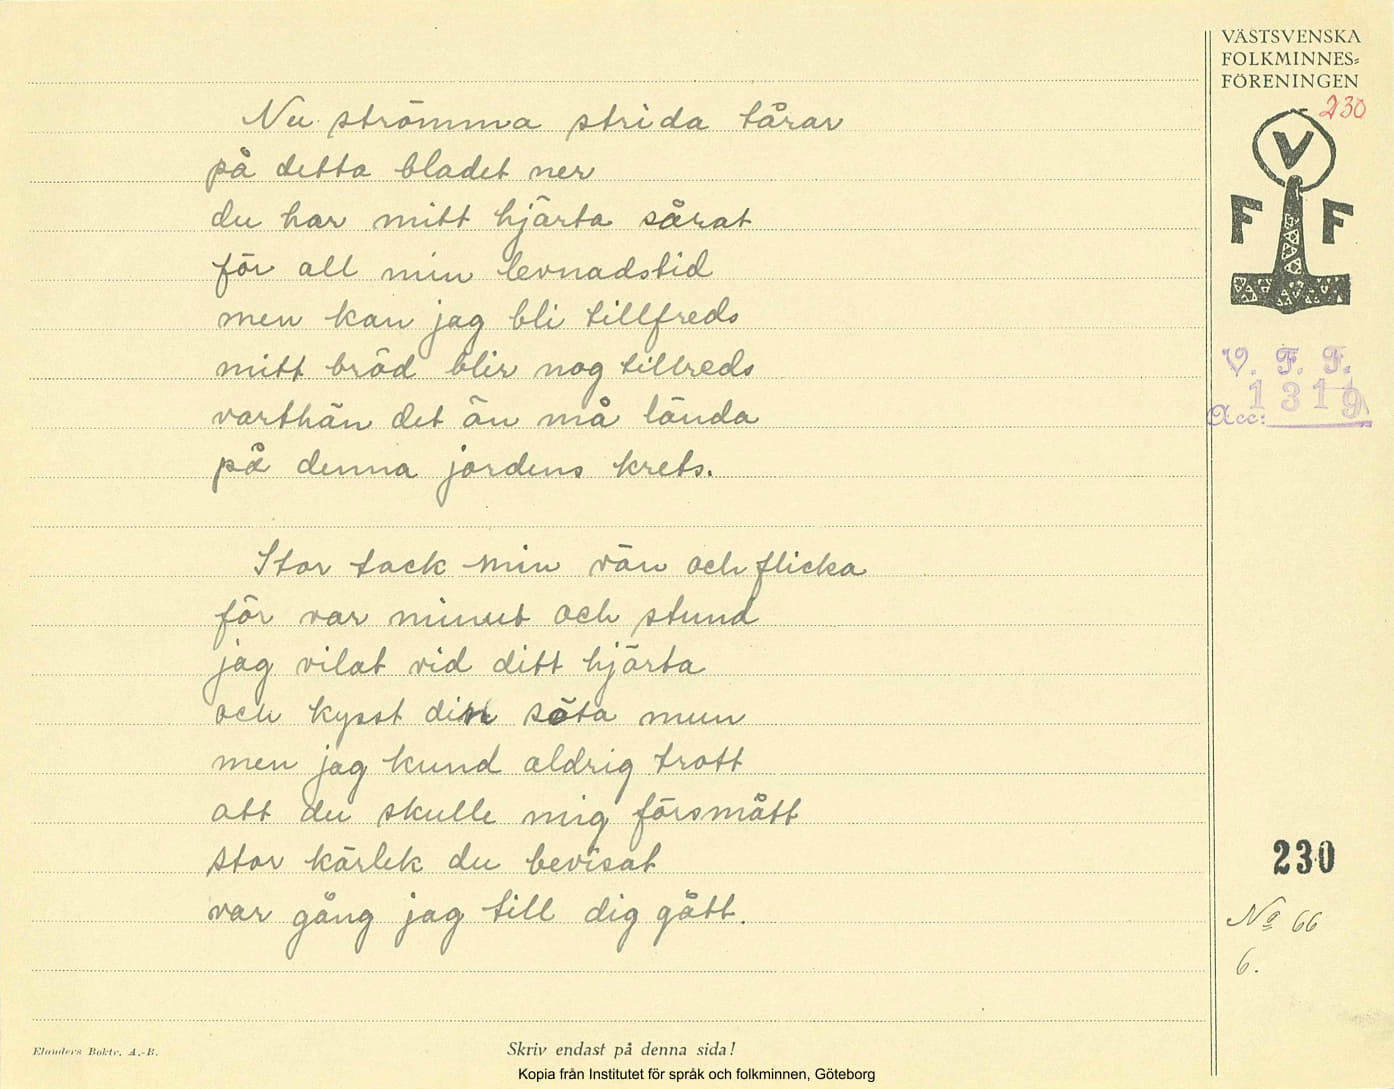 VÄSTSVENSKA
FOLKMINNES-
FÖRENINGEN
230
V
F F
V. F. F.
Acc: 1319
Nu strömma strida tårar
på detta bladet ner
du har mitt hjärta sårat
för all min levnadstid
men kan jag bli tillfreds
mitt bröd blir nog tillreds
varthän det än må lända
på denna jordens krets.
Stor tack min vän och flicka
för var minut och stund
jag vilat vid ditt hjärta
och kysst din söta mun
men jag kund aldrig trott
att du skulle mig försmått
stor kärlek du bevisat
var gång jag till dig gått.
230
No 66
6.
Elanders Boktr. A.-B.
Skriv endast på denna sida!
Kopia från Institutet för språk och folkminnen, Göteborg